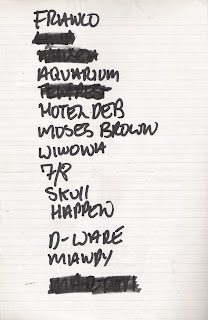 FRANCO
AQUARIUM
HOTEL DEB
MOSES BROWN
WINONA
7/8
SKULL
HAPPEN
D-WARE
MIAWDY